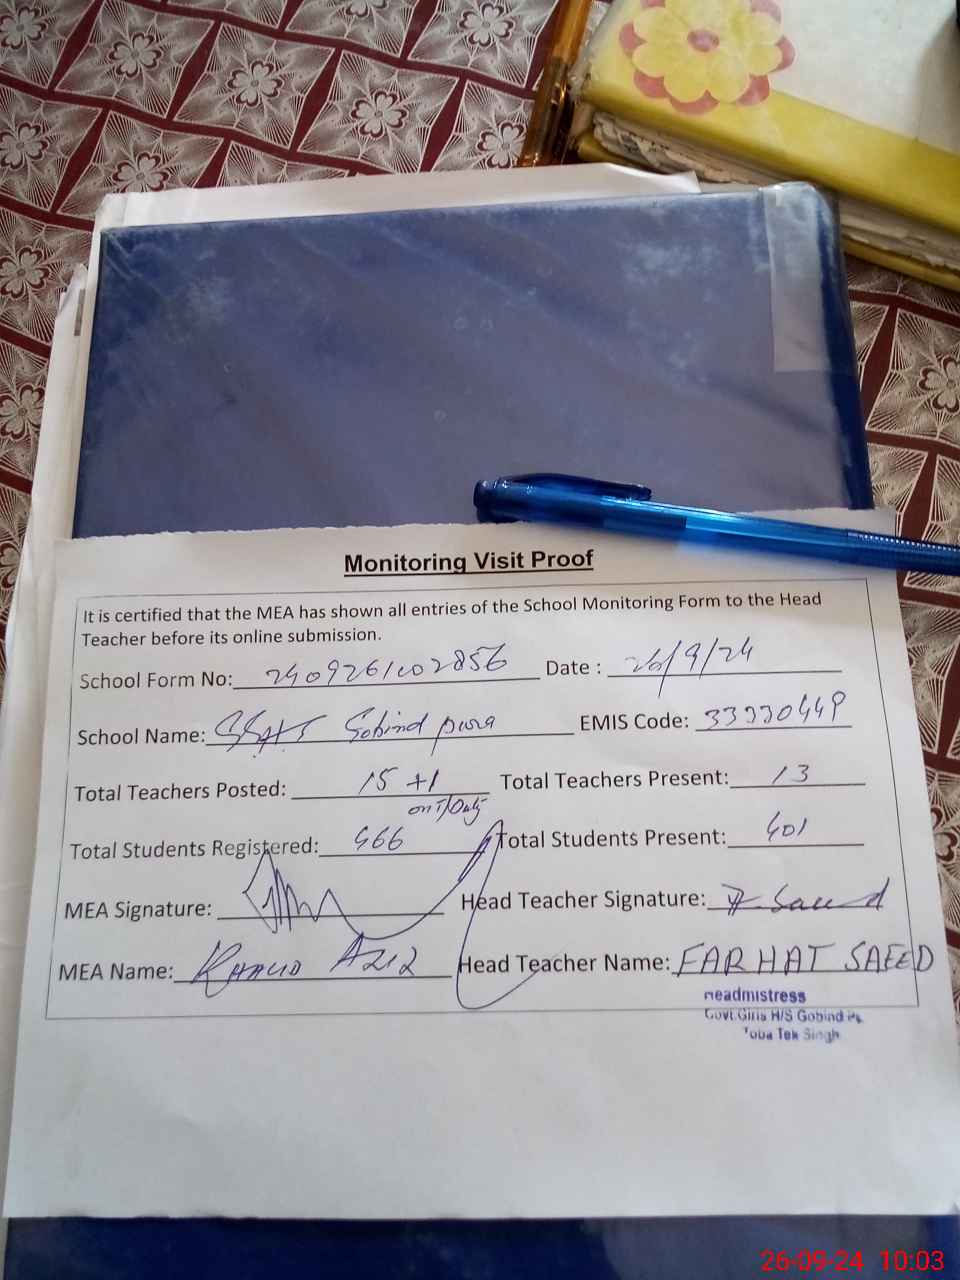 Monitoring Visit Proof
It is certified that the MEA has shown all entries of the School Monitoring Form to the Head
Teacher before its online submission.
School Form No: 240926102856 Date : 26/9/24
School Name: GGHS Gobind pura EMIS Code: 33330449
Total Teachers Posted: 15 +1 Total Teachers Present: 13
on T/Duty
Total Students Registered: 466 Total Students Present: 401
MEA Signature: Head Teacher Signature: F. Saeed
MEA Name: KHALID AZIZ Head Teacher Name: FARHAT SAEED
Headmistress
Govt.Girls H/S Gobind
Toba Tek Singh
26-09-24 10:03